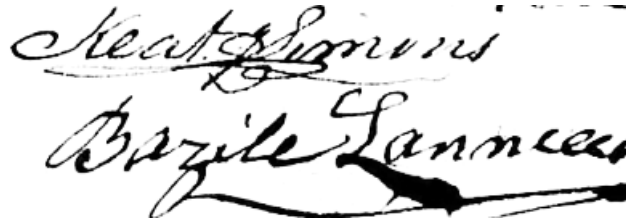 Keat. Simons
Bazile Lanneau